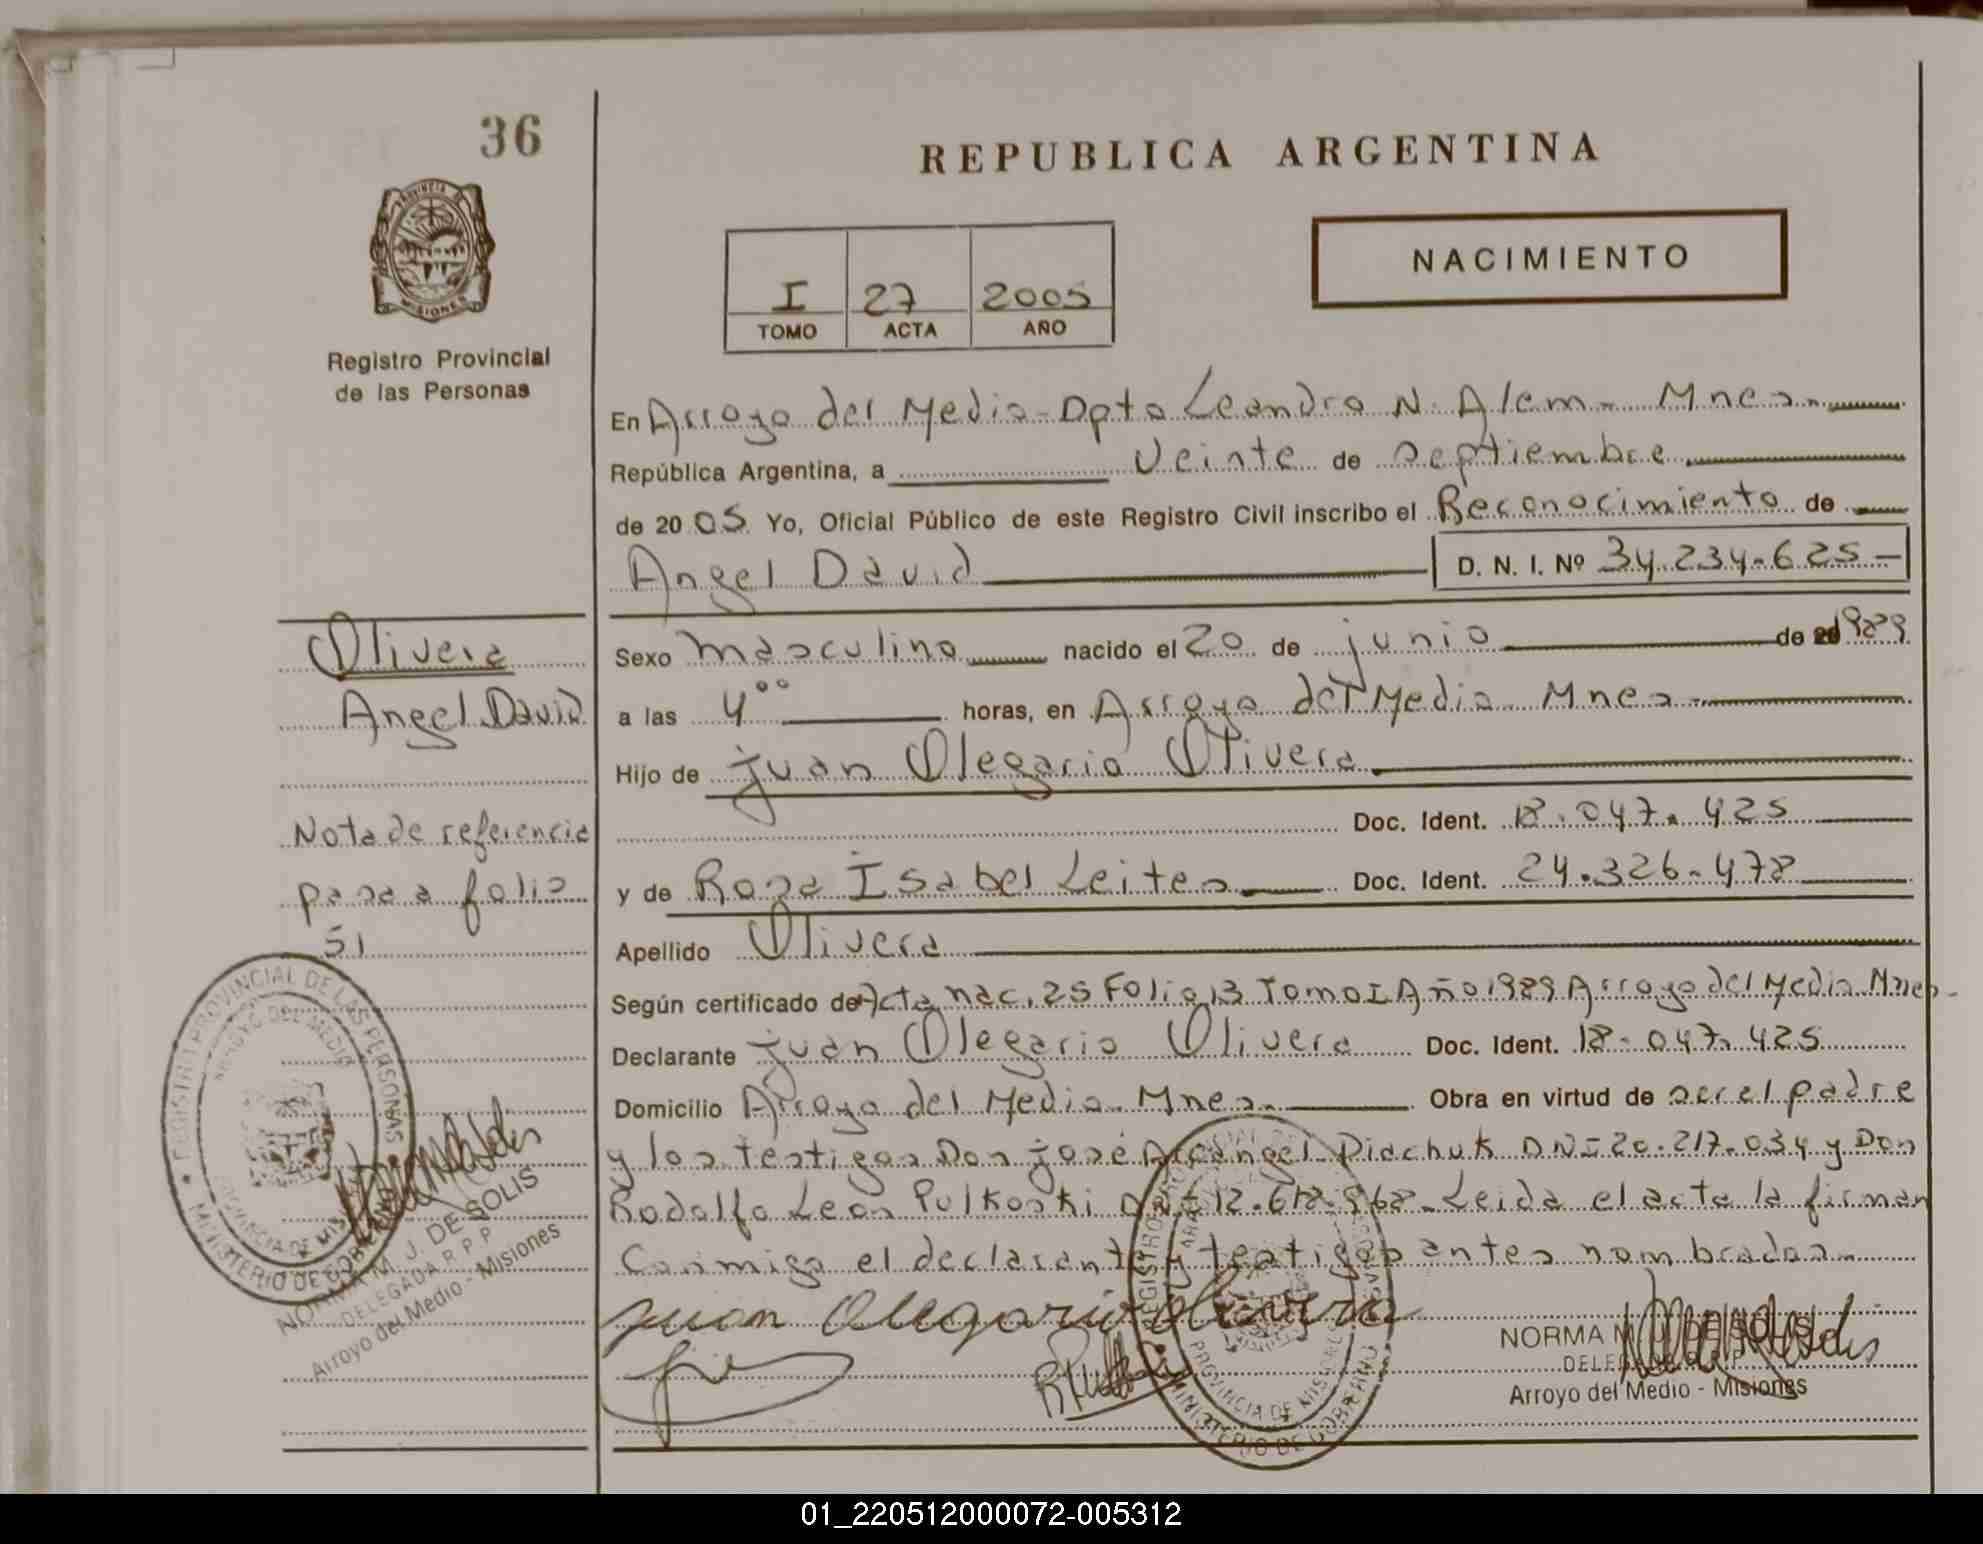 36
PROVINCIA
MISIONES
Registro Provincial
de las Personas
REPUBLICA ARGENTINA
I 27 2005
TOMO ACTA AÑO
NACIMIENTO
En Arroyo del Medio - Dpto Leandro N. Alem - Mnes.
República Argentina, a Veinte de septiembre
de 2005 Yo, Oficial Público de este Registro Civil inscribo el Reconocimiento de
Angel David D. N. I. Nº 34.234.625
Olivera
Angel David
Nota de referencia
pasa a folio
51
Sexo masculino nacido el 20 de junio de 1989
a las 4°° horas, en Arroyo del Medio - Mnes.
Hijo de Juan Olegario Olivera
Doc. Ident. 18.047.425
y de Rosa Isabel Leites Doc. Ident. 24.326.478
Apellido Olivera
Según certificado de Acta nac. 25 Folio 13 Tomo I Año 1989 Arroyo del Medio Mnes.
Declarante Juan Olegario Olivera Doc. Ident. 18.047.425
Domicilio Arroyo del Medio - Mnes. Obra en virtud de ser el padre
y los testigos Don José Arcangel Diachuk DNI 20.217.034 y Don
Rodolfo Leon Pulkoski DNI 12.618.968 - Leida el acta la firman
Conmigo el declarante y testigos antes nombrados
Juan Olegario Olivera
REGISTRO PROVINCIAL DE LAS PERSONAS
ARROYO DEL MEDIO
PROVINCIA DE MISIONES
MINISTERIO DE GOBIERNO
NORMA M. J. DE SOLIS
DELEGADA R.P.P.
Arroyo del Medio - Misiones
REGISTRO PROVINCIAL DE LAS PERSONAS
PROVINCIA DE MISIONES
MINISTERIO DE GOBIERNO
NORMA M. J. DE SOLIS
DELEGADA R.P.P.
Arroyo del Medio - Misiones
01_220512000072-005312